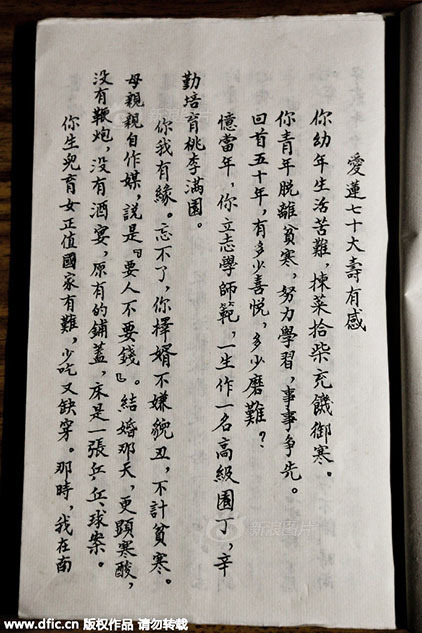 愛蓮七十大壽有感
你幼年生活苦難，揀菜拾柴充饑御寒。
你青年脱離貧寒，努力學習，事事争先。
回首五十年，有多少喜悦，多少磨難？
憶當年，你立志學師範，一生作一名高級園丁，辛
勤培育桃李满園。
你我有緣。忘不了，你擇婿不嫌貌丑，不計貧寒。
母親親自作媒，説是『要人不要錢』。结婚那天，更顕寒酸，
没有鞭炮，没有酒宴，原有的鋪蓋，床是一張乒乓球案。
你生兒育女正值國家有難，少吃又缺穿。那時，我在南
新浪图片
www.dfic.cn 版权作品 请勿转载